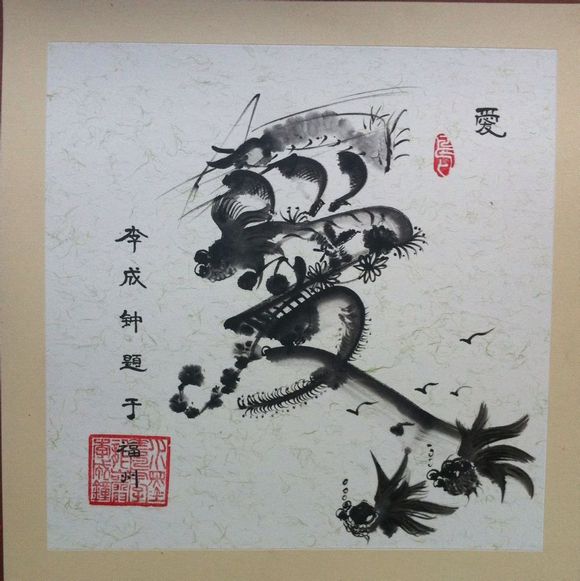 愛
李成钟题于福州